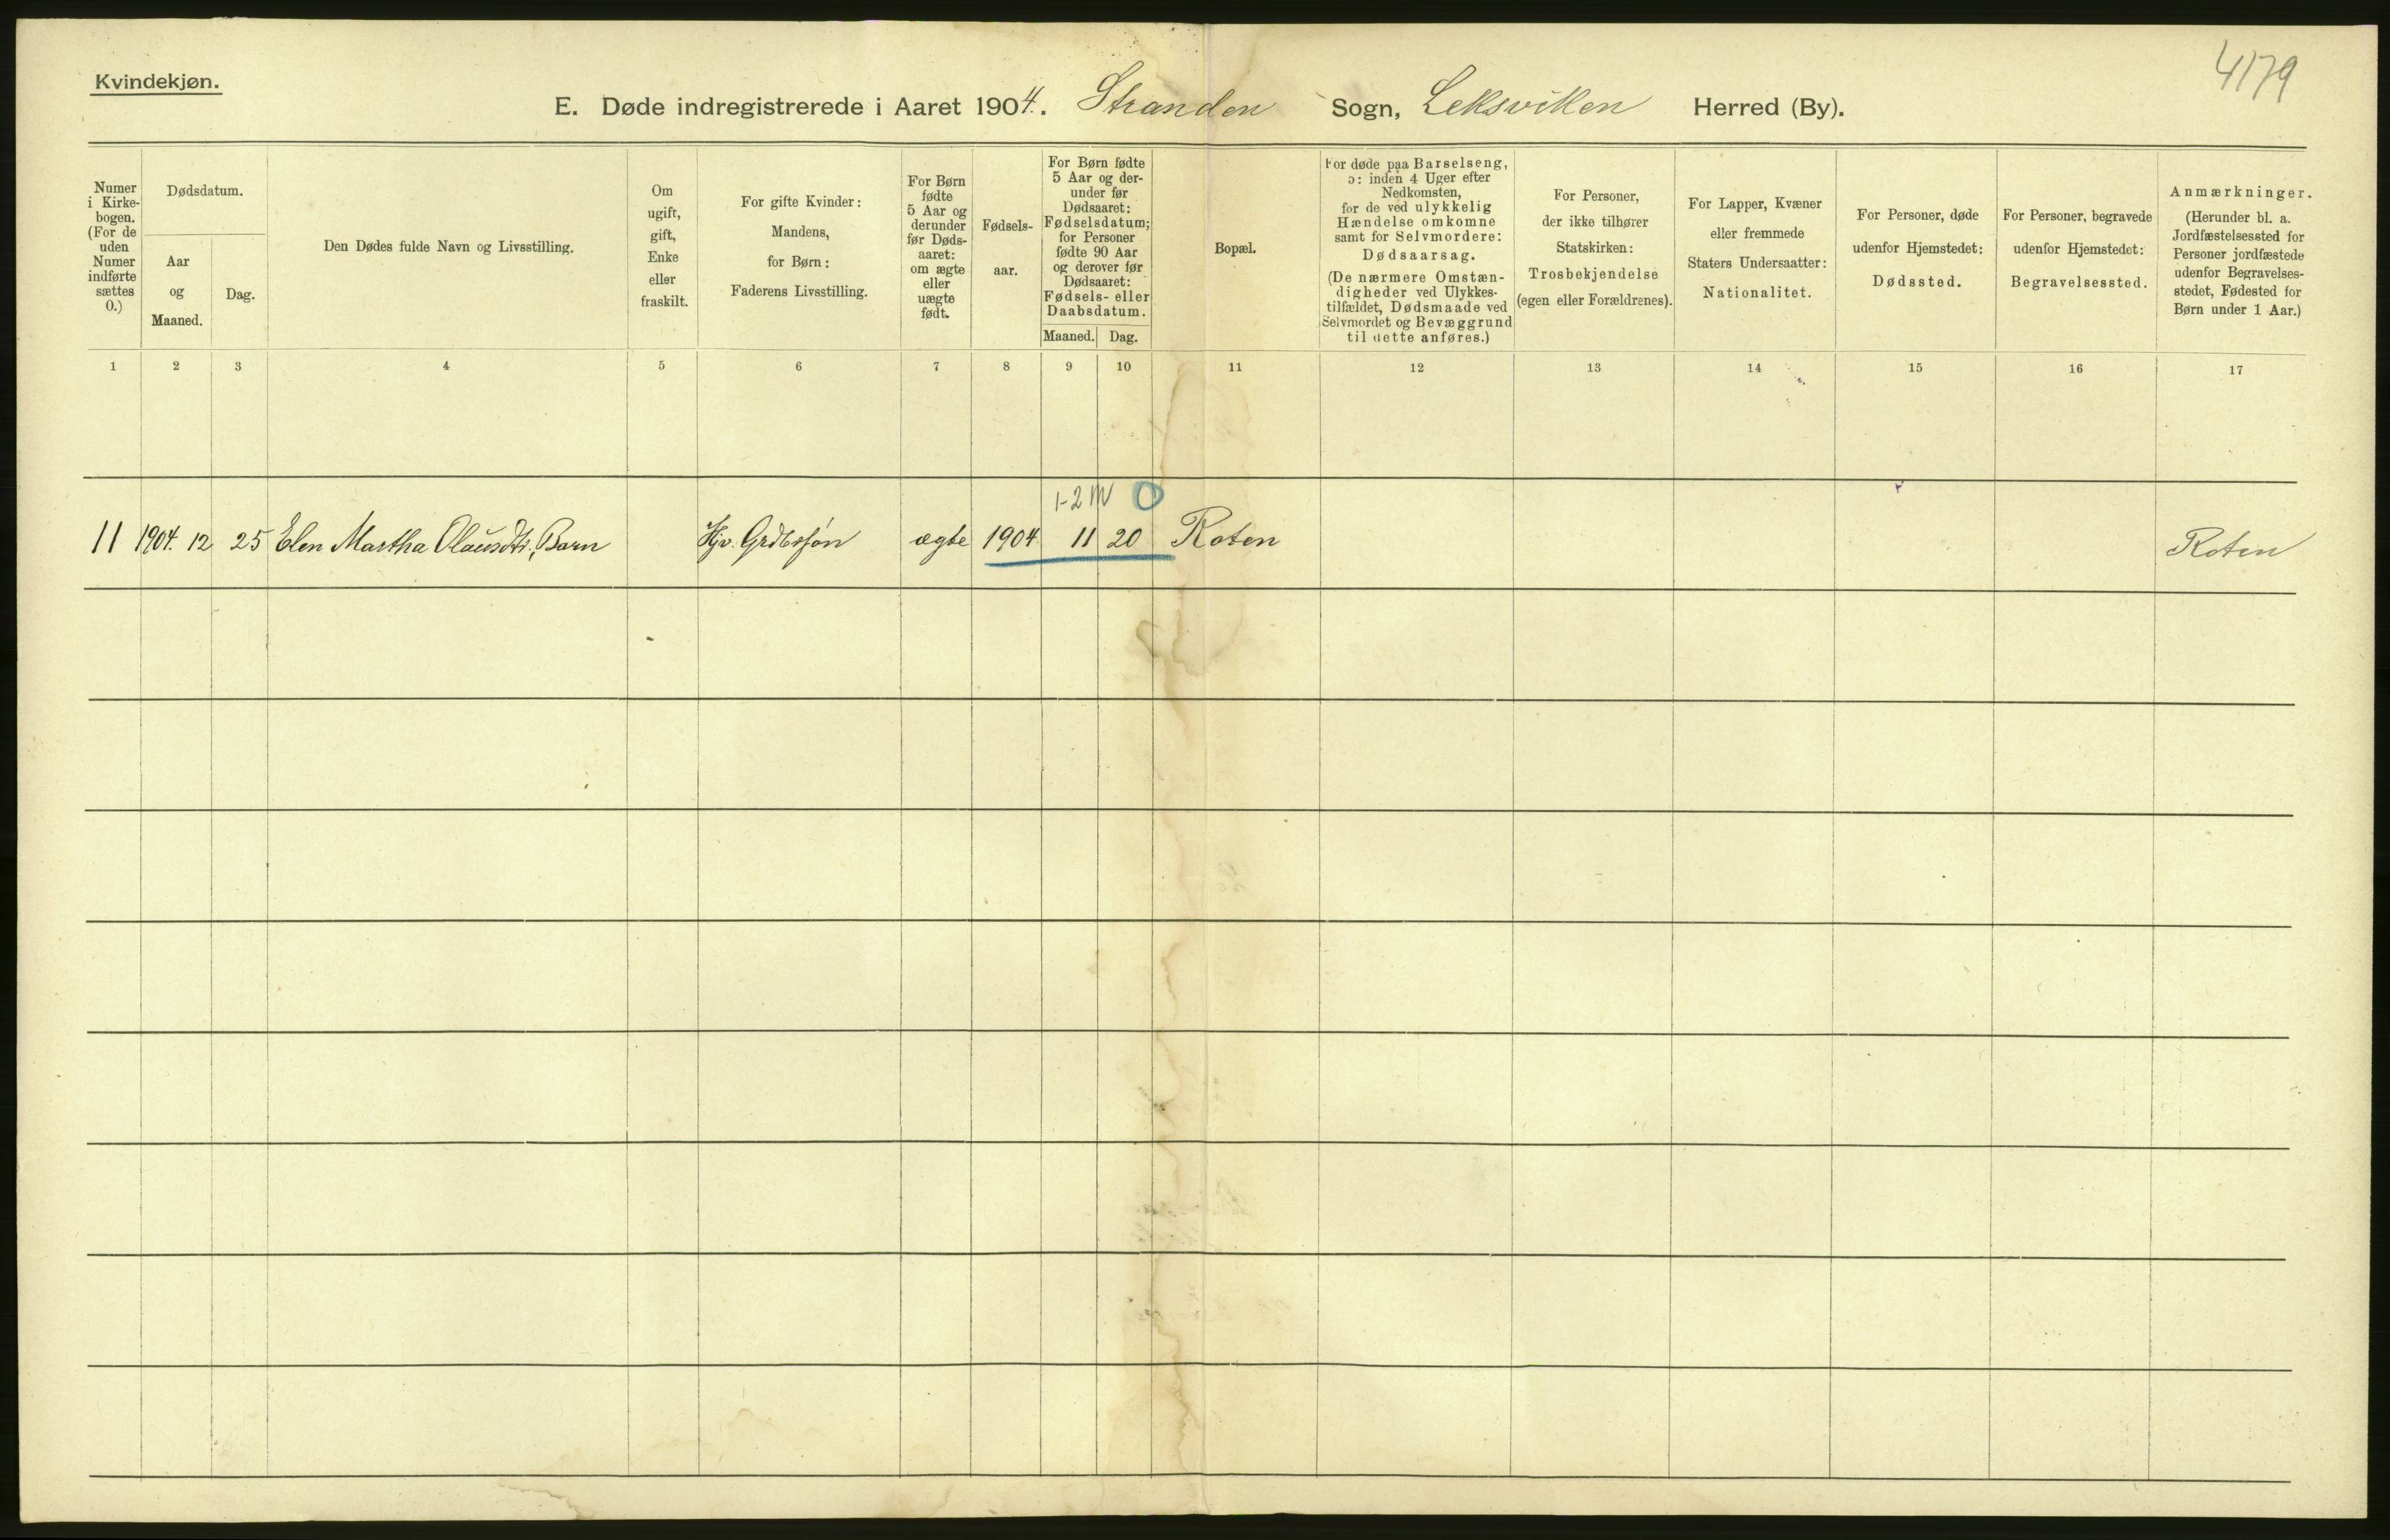 4179
Kvindekjøn.
E. Døde indregistrerede i Aaret 1904. Stranden Sogn, Leksviken Herred (By).
Numer
i Kirke-
bogen.
(For de
uden
Numer
indførte
sættes
0.)
Dødsdatum.
Aar
og
Maaned.
Dag.
Den Dødes fulde Navn og Livsstilling.
Om
ugift,
gift,
Enke
eller
fraskilt.
For gifte Kvinder:
Mandens,
for Børn:
Faderens Livsstilling.
For Børn
fødte
5 Aar og
derunder
før Døds-
aaret:
om ægte
eller
uægte
født.
Fødsels-
aar.
For Børn fødte
5 Aar og der-
under før
Dødsaaret:
Fødselsdatum;
for Personer
fødte 90 Aar
og derover før
Dødsaaret:
Fødsels- eller
Daabsdatum.
Maaned. Dag.
Bopæl.
For døde paa Barselseng,
ɔ: inden 4 Uger efter
Nedkomsten,
for de ved ulykkelig
Hændelse omkomne
samt for Selvmordere:
Dødsaarsag.
(De nærmere Omstæn-
digheder ved Ulykkes-
tilfældet, Dødsmaade ved
Selvmordet og Bevæggrund
til dette anføres.)
For Personer,
der ikke tilhører
Statskirken:
Trosbekjendelse
(egen eller Forældrenes).
For Lapper, Kvæner
eller fremmede
Staters Undersaatter:
Nationalitet.
For Personer, døde
udenfor Hjemstedet:
Dødssted.
For Personer, begravede
udenfor Hjemstedet:
Begravelsessted.
Anmærkninger.
(Herunder bl. a.
Jordfæstelsessted for
Personer jordfæstede
udenfor Begravelses-
stedet, Fødested for
Børn under 1 Aar.)
1 2 3 4 5 6 7 8 9 10 11 12 13 14 15 16 17
1-2 M 0
11 1904. 12 25 Elen Martha Olausdtr., Barn ægte 1904 11 20 Roten Roten